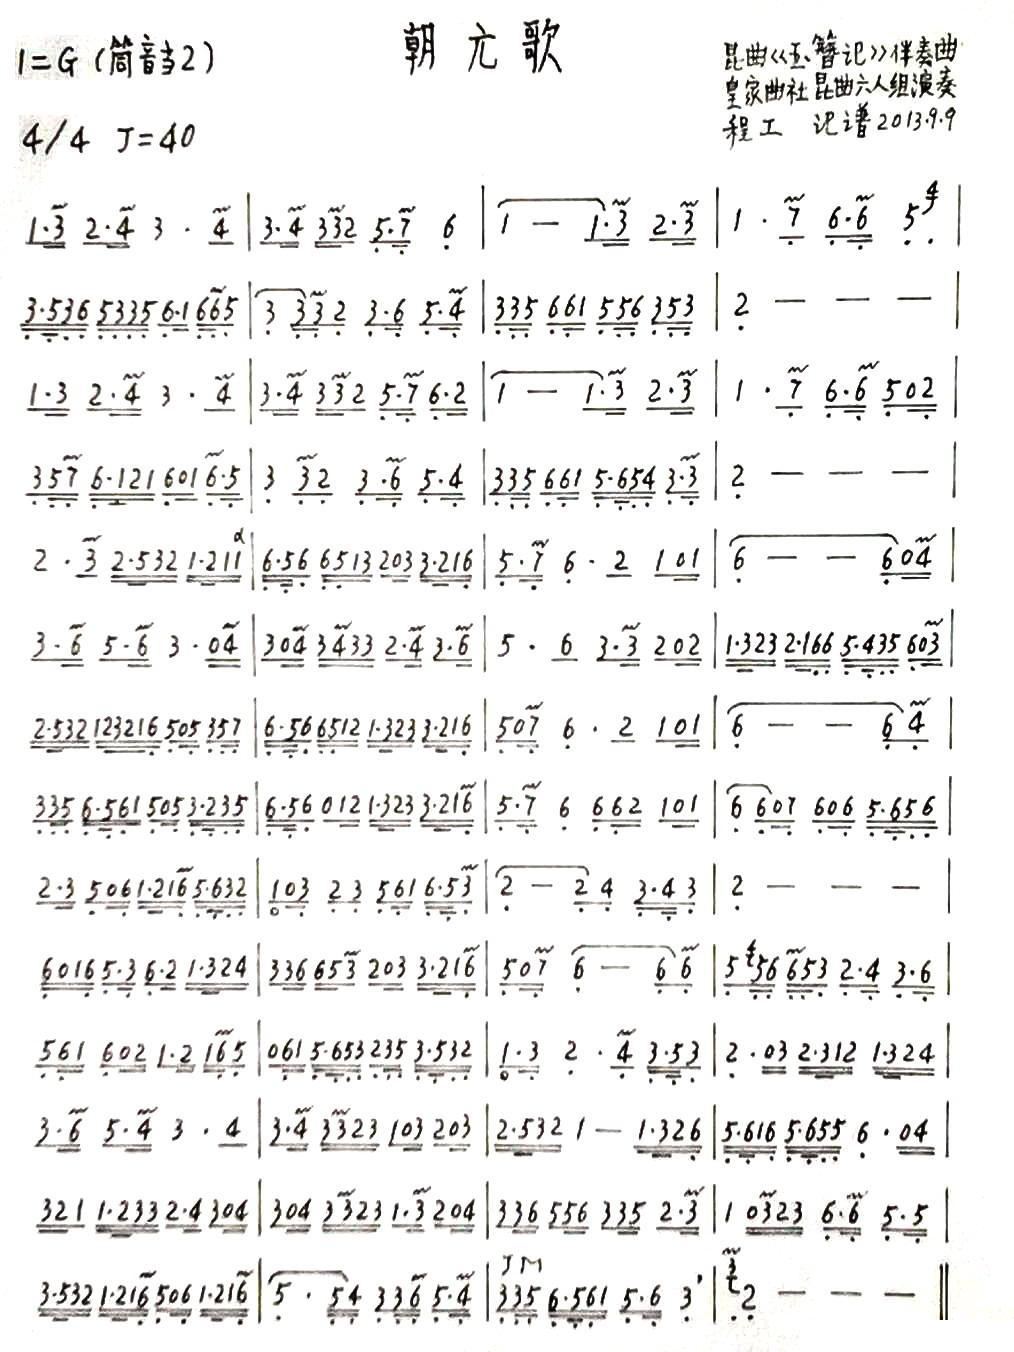 朝元歌
1=G (筒音当2)
4/4 J=40
昆曲《玉簪记》伴奏曲
皇家曲社 昆曲六人组演奏
程工 记谱 2013.9.9
1·3 2·4 3 · 4 | 3·4 332 5·7 6 | 1 — 1·3 2·3 | 1 · 7 6·6 5 |
3·536 5335 6·1 665 | 3 332 3·6 5·4 | 335 661 556 353 | 2 — — — |
1·3 2·4 3 · 4 | 3·4 332 5·7 6·2 | 1 — 1·3 2·3 | 1 · 7 6·6 502 |
357 6·121 601 6·5 | 3 32 3·6 5·4 | 335 661 5·654 3·3 | 2 — — — |
2 · 3 2·532 1·211 | 6·56 6513 203 3·216 | 5·7 6 · 2 101 | 6 — — 604 |
3·6 5·6 3 · 04 | 304 3433 2·4 3·6 | 5 · 6 3·3 202 | 1·323 2·166 5·435 603 |
2·532 123216 505 357 | 6·56 6512 1·323 3·216 | 507 6 · 2 101 | 6 — — 64 |
335 6·561 505 3·235 | 6·56 012 1·323 3·216 | 5·7 6 662 101 | 6 607 606 5·656 |
2·3 506 1·216 5·632 | 103 23 561 6·53 | 2 — 24 3·43 | 2 — — — |
6016 5·3 6·2 1·324 | 336 653 203 3·216 | 507 6 — 66 | 5 56 653 2·4 3·6 |
561 602 1·2 165 | 061 5·653 235 3·532 | 1·3 2 · 4 3·53 | 2 · 03 2·312 1·324 |
3·6 5·4 3 · 4 | 3·4 3323 103 203 | 2·532 1 — 1·326 | 5·616 5·655 6 · 04 |
321 1·233 2·4 304 | 304 3323 1·3 204 | 336 556 335 2·3 | 1 0323 6·6 5·5 |
3·532 1·216 506 1·216 | 5 · 54 336 5·4 | 335 6·561 5·6 3 | 2 — — — ‖